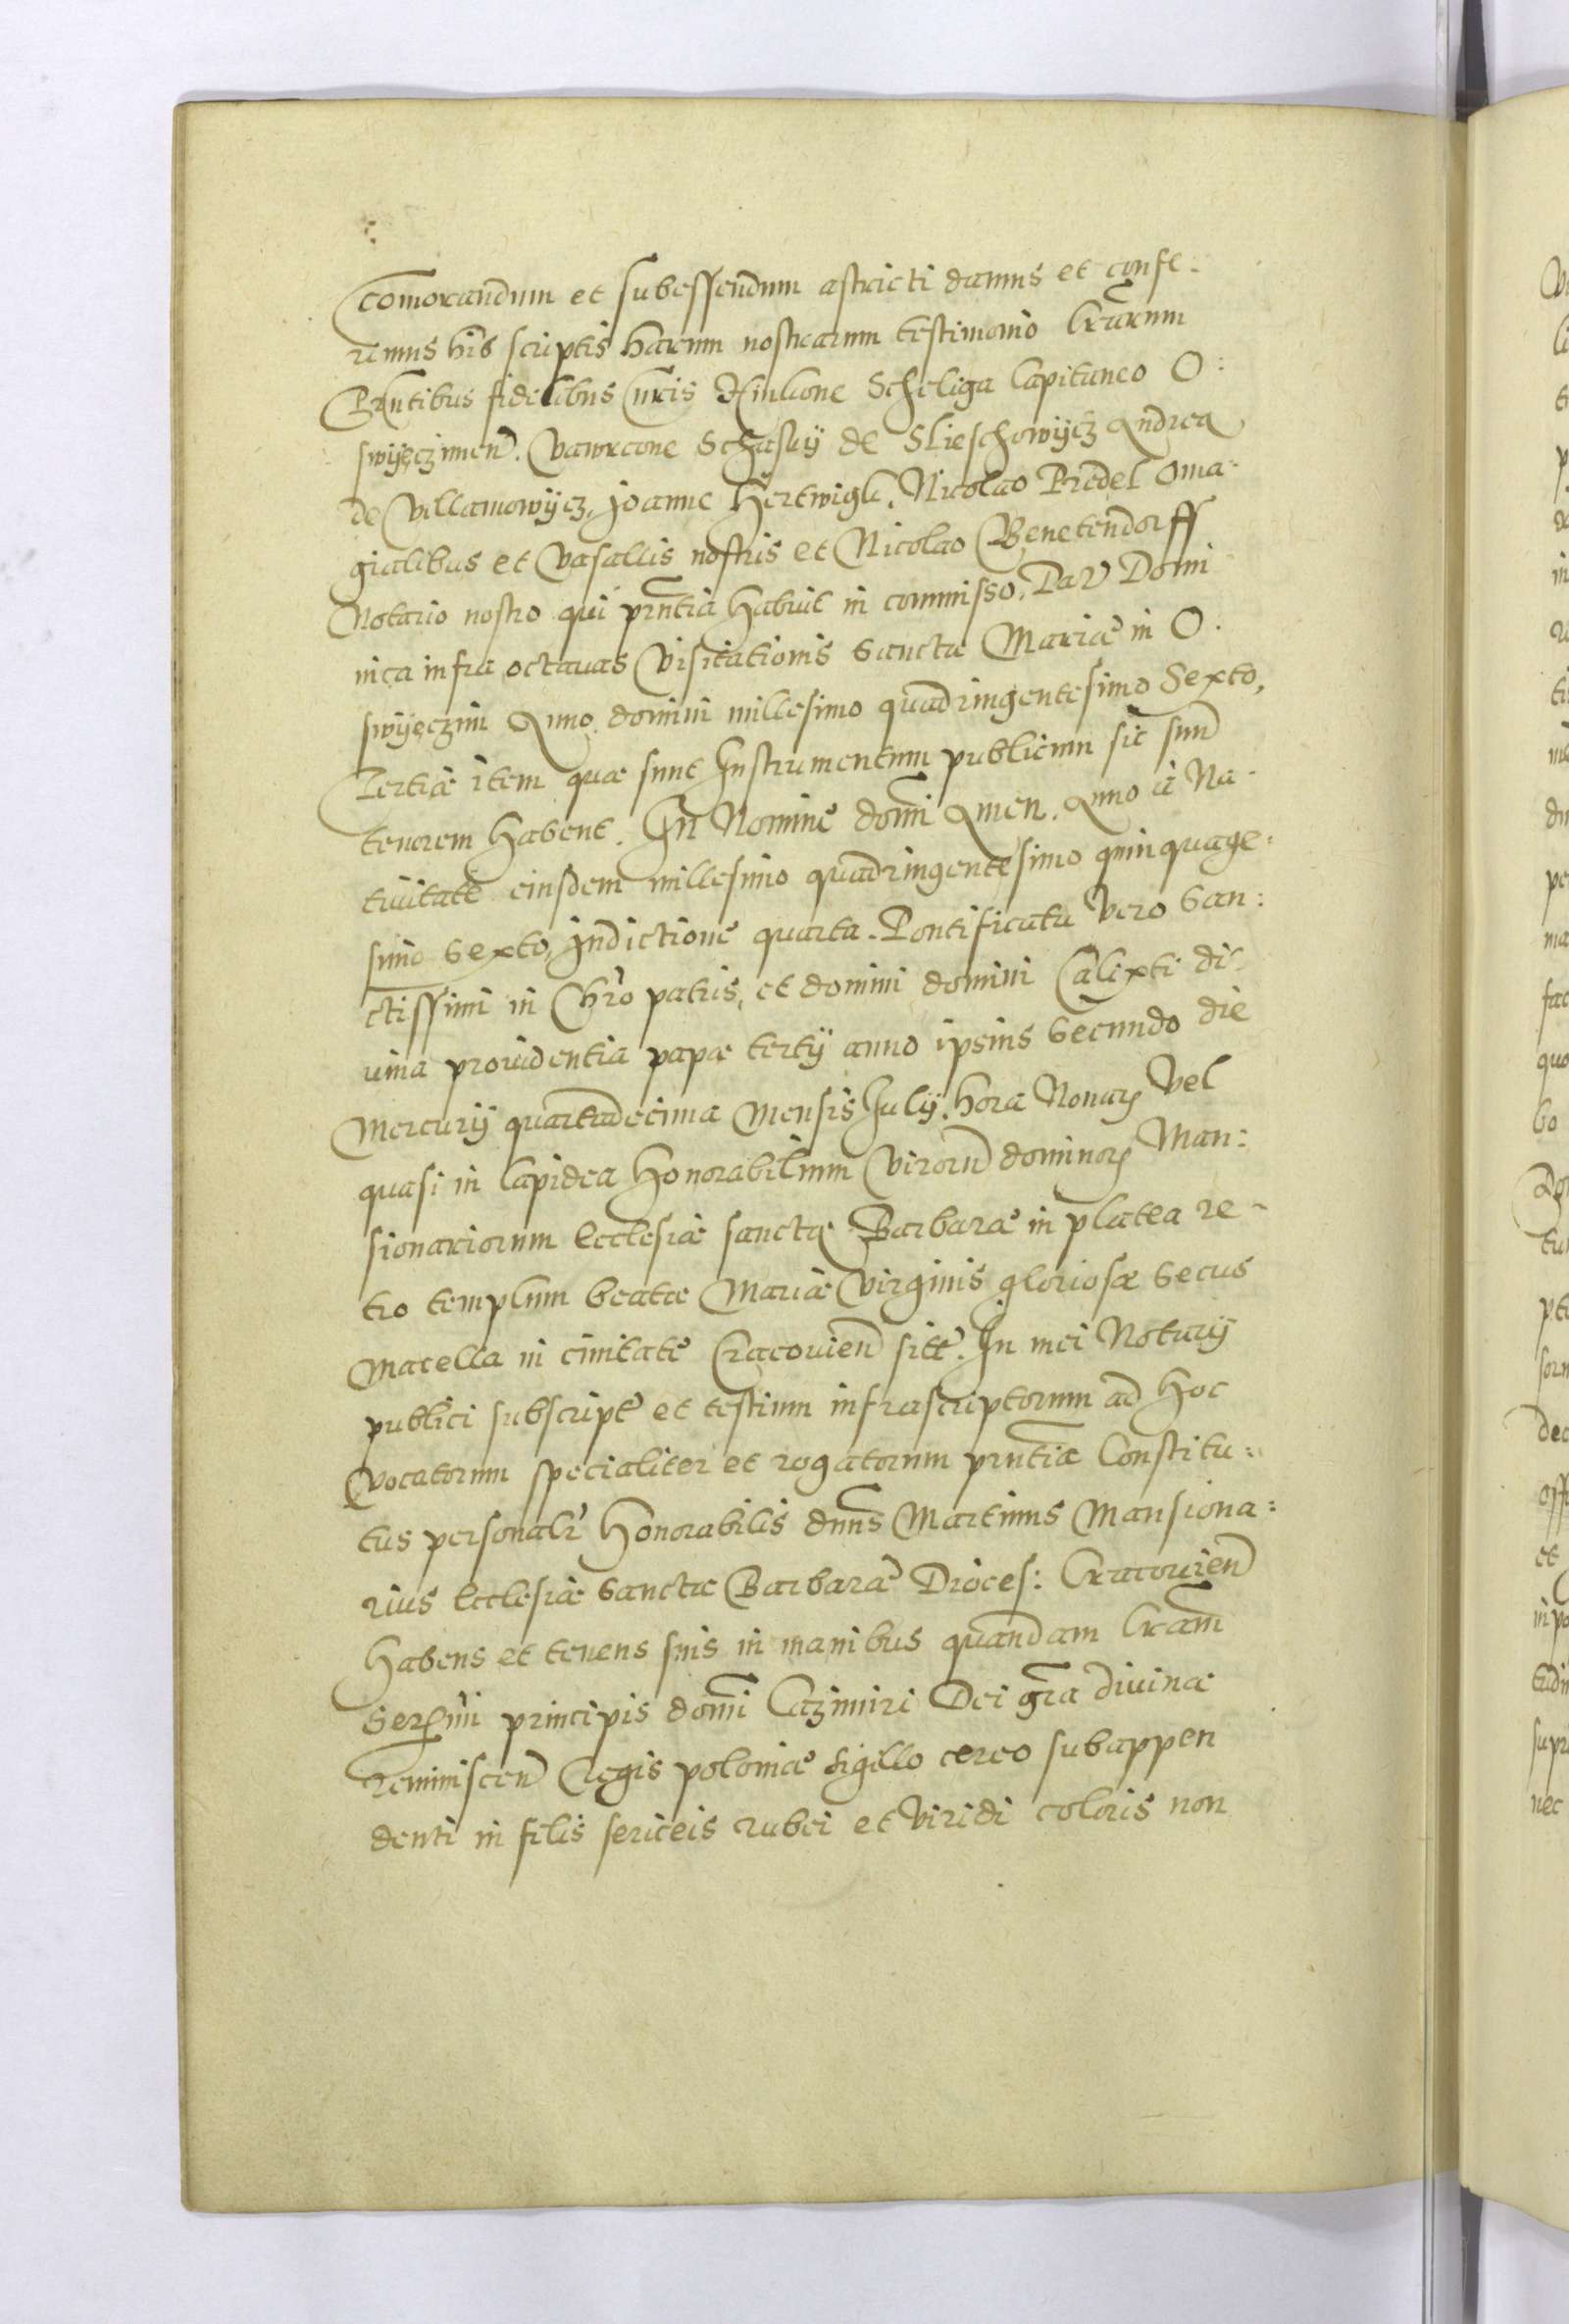 comorandum et subessendum astricti damus et confe-
rimus his scriptis harum nostrarum testimonio lrarum
Prntibus fidelibus nris Hinkone Scheliga Capitaneo O:
swyęczimen. Vawrcone Schasky de Slieschowycz Andrea
de Villamowycz, Joanne Hertwigk, Nicolao Predel Oma-
gialibus et Vasallis nostris et Nicolao Benetendorff
Notario nostro qui prntia habuit in commisso. Dat Domi
nica infra octavas Visitationis Sanctæ Mariæ in O.
swyęczim Anno domini millesimo quadringentesimo Sexto,
Tertiæ item quæ sunt Instrumentum publicum sic sunt
tenorem habent. In Nomine domi Amen. Anno à Na-
tivitate eiusdem millesimo quadringentesimo quinquage-
simo Sexto, Indictione quarta. Pontificatu Vero San:
ctissimi in Chro patris, et domini domini Calixti di-
vina providentia papæ tertÿ anno ipsius Secundo die
Mercurÿ quartadecima Mensis Julÿ. hora Nonarum Vel
quasi in lapidea Honorabilium Virorum dominorum Man:
sionariorum Ecclesiæ sanctæ Barbaræ in platea re-
tro templum beatæ Mariæ Virginis gloriosæ Secus
Macella in civitate Cracovien sitt. In mei Notarÿ
publici subscript et testium infrascriptorum ad hoc
Vocatorum specialiter et rogatorum prntia Constitu:
tus personalr Honorabilis dnns Martinus Mansiona:
rius Ecclesiæ Sanctæ Barbaræ Dioces: Cracovien
habens et tenens suis in manibus quandam lram
Sermi principis domi Cazimiri Dei gra divinæ
reminiscen Regis poloniæ sigillo cereo subappen
denti in filis sericeis rubei et Viridi coloris non